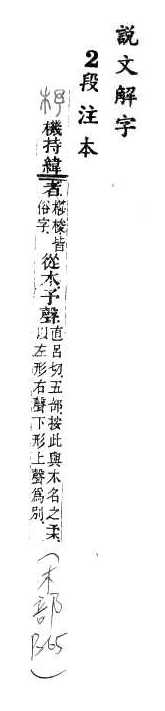 說文解字
2段注本
杼 機持緯者 梭皆俗字 從木予聲 直呂切五部按此與木名之柔以左形右聲下形上聲爲別 (木部 B65)